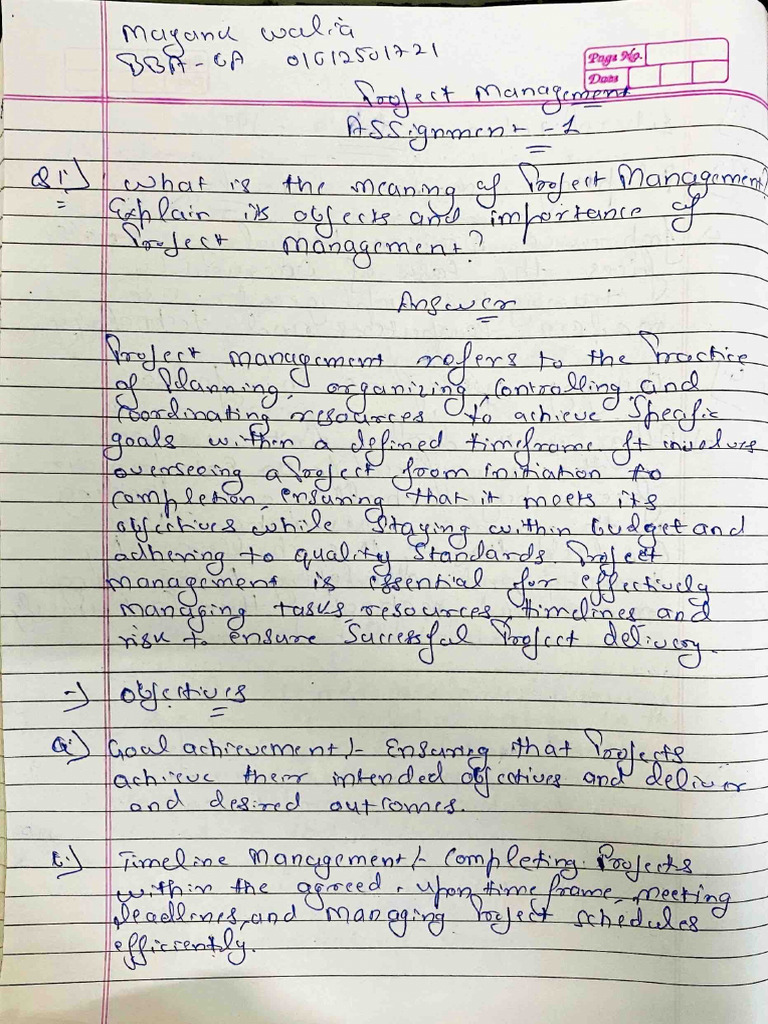 Mayank Walia
BBA-6A 01612501721
Page No.
Date
Project Management
Assignment - 1
Q1.) What is the meaning of Project Management?
Explain its objects and importance of
Project Management?
Answer
Project management refers to the Practice
of Planning, organizing, controlling and
coordinating resources to achieve Specific
goals within a defined timeframe It involves
overseeing a Project from initiation to
completion, ensuring that it meets its
objectives while staying within budget and
adhering to quality Standards. Project
management is essential for effectively
managing tasks, resources, timelines and
risk to ensure Successful Project delivery.
-) Objectives
a.) Goal achievement /- Ensuring that Projects
achieve their intended objectives and deliver
and desired outcomes.
b.) Timeline Management /- Completing Projects
within the agreed - upon time frame, meeting
deadlines, and managing Project schedules
efficiently.